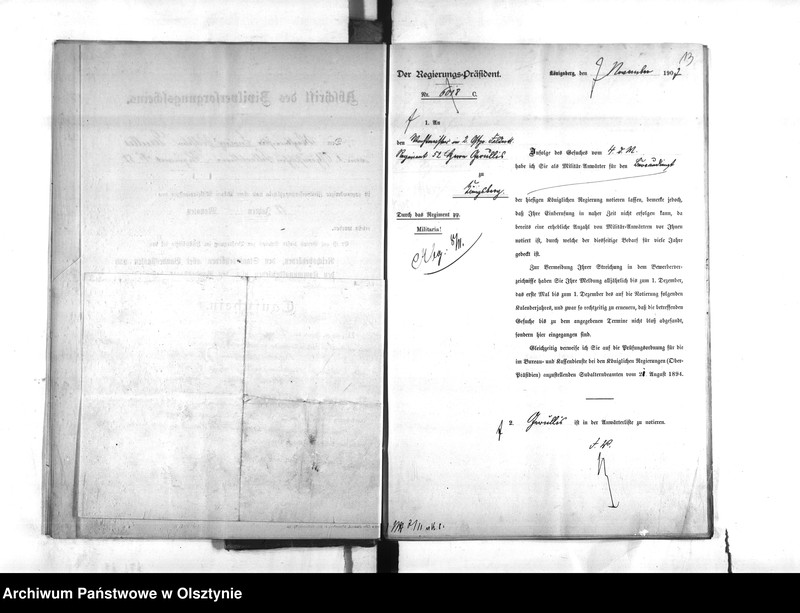 13
Der Regierungs-Präsident.
Königsberg, den 9 November 1907
Nr. 6018 C.
1. An
den Wachtmeister im 2. Ostpr. Feldart.
Regiment 52 Herrn
zu
Königsberg.
Durch das Regiment pp.
Militaria!
Zufolge des Gesuches vom 4. d. M.
habe ich Sie als Militär-Anwärter für den Bureaudienst
der hiesigen Königlichen Regierung notieren lassen, bemerke jedoch,
daß Ihre Einberufung in naher Zeit nicht erfolgen kann, da
bereits eine erhebliche Anzahl von Militär-Anwärtern vor Ihnen
notiert ist, durch welche der diesseitige Bedarf für viele Jahre
gedeckt ist.
Zur Vermeidung Ihrer Streichung in dem Bewerberver-
zeichnisse haben Sie Ihre Meldung alljährlich bis zum 1. Dezember,
das erste Mal bis zum 1. Dezember des auf die Notierung folgenden
Kalenderjahres, und zwar so rechtzeitig zu erneuern, daß die betreffenden
Gesuche bis zu dem angegebenen Termine nicht bloß abgesandt,
sondern hier eingegangen sind.
Gleichzeitig verweise ich Sie auf die Prüfungsordnung für die
im Bureau- und Kassendienste bei den Königlichen Regierungen (Ober-
Präsidien) anzustellenden Subalternbeamten vom August 1894.
2. ist in der Anwärterliste zu notieren.
Archiwum Państwowe w Olsztynie